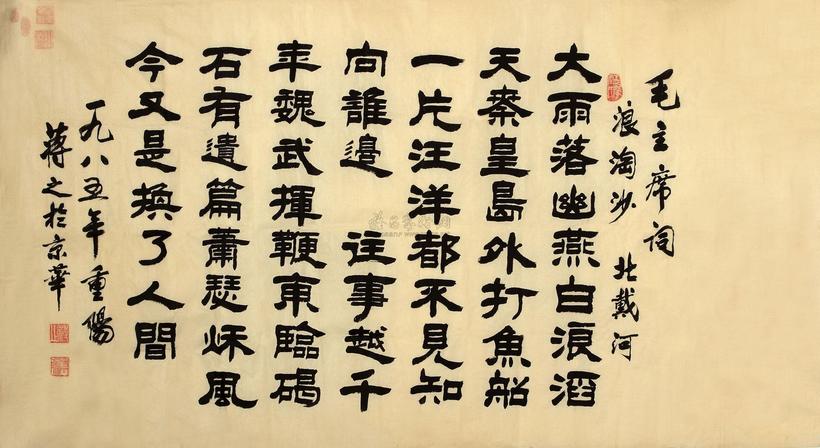 毛主席词
浪淘沙 北戴河
大雨落幽燕白浪滔
天秦皇島外打魚船
一片汪洋都不見知
向誰邊 往事越千
年魏武揮鞭東臨碣
石有遺篇蕭瑟秋風
今又是換了人間
一九八五年重陽
蔣之於京華